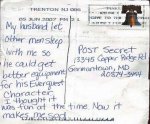 TRENTON NJ 086
05 JUN 2007 PM 2 L
My husband let
other men sleep
with me so
he could get
better equipment
for his Everquest
Character.
I thought it
was fun at the time. Now it
makes me sad.
Post Secret
13345 Copper Ridge Rd
Germantown, MD
20874-3454